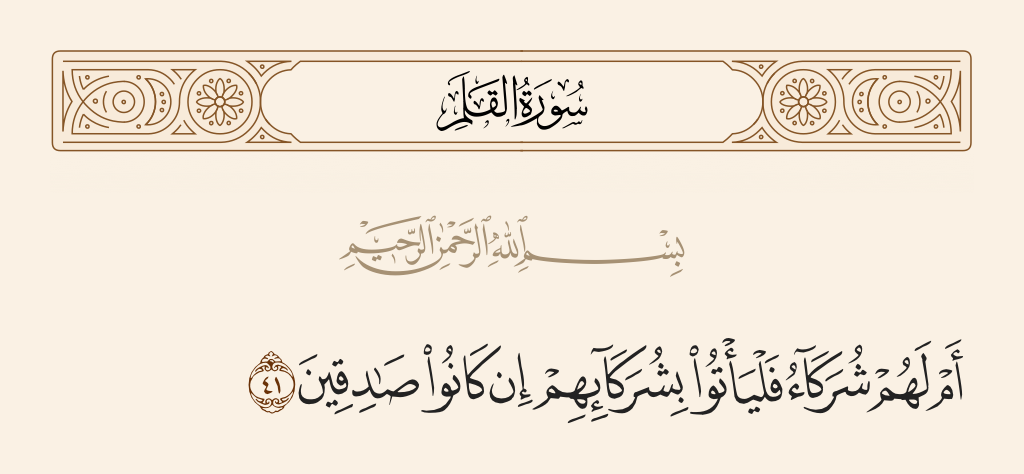 سُورَةُ القَلَمِ
بِسْمِ ٱللَّهِ ٱلرَّحْمَٰنِ ٱلرَّحِيمِ
أَمْ لَهُمْ شُرَكَآءُ فَلْيَأْتُوا۟ بِشُرَكَآئِهِمْ إِن كَانُوا۟ صَـٰدِقِينَ ٤١